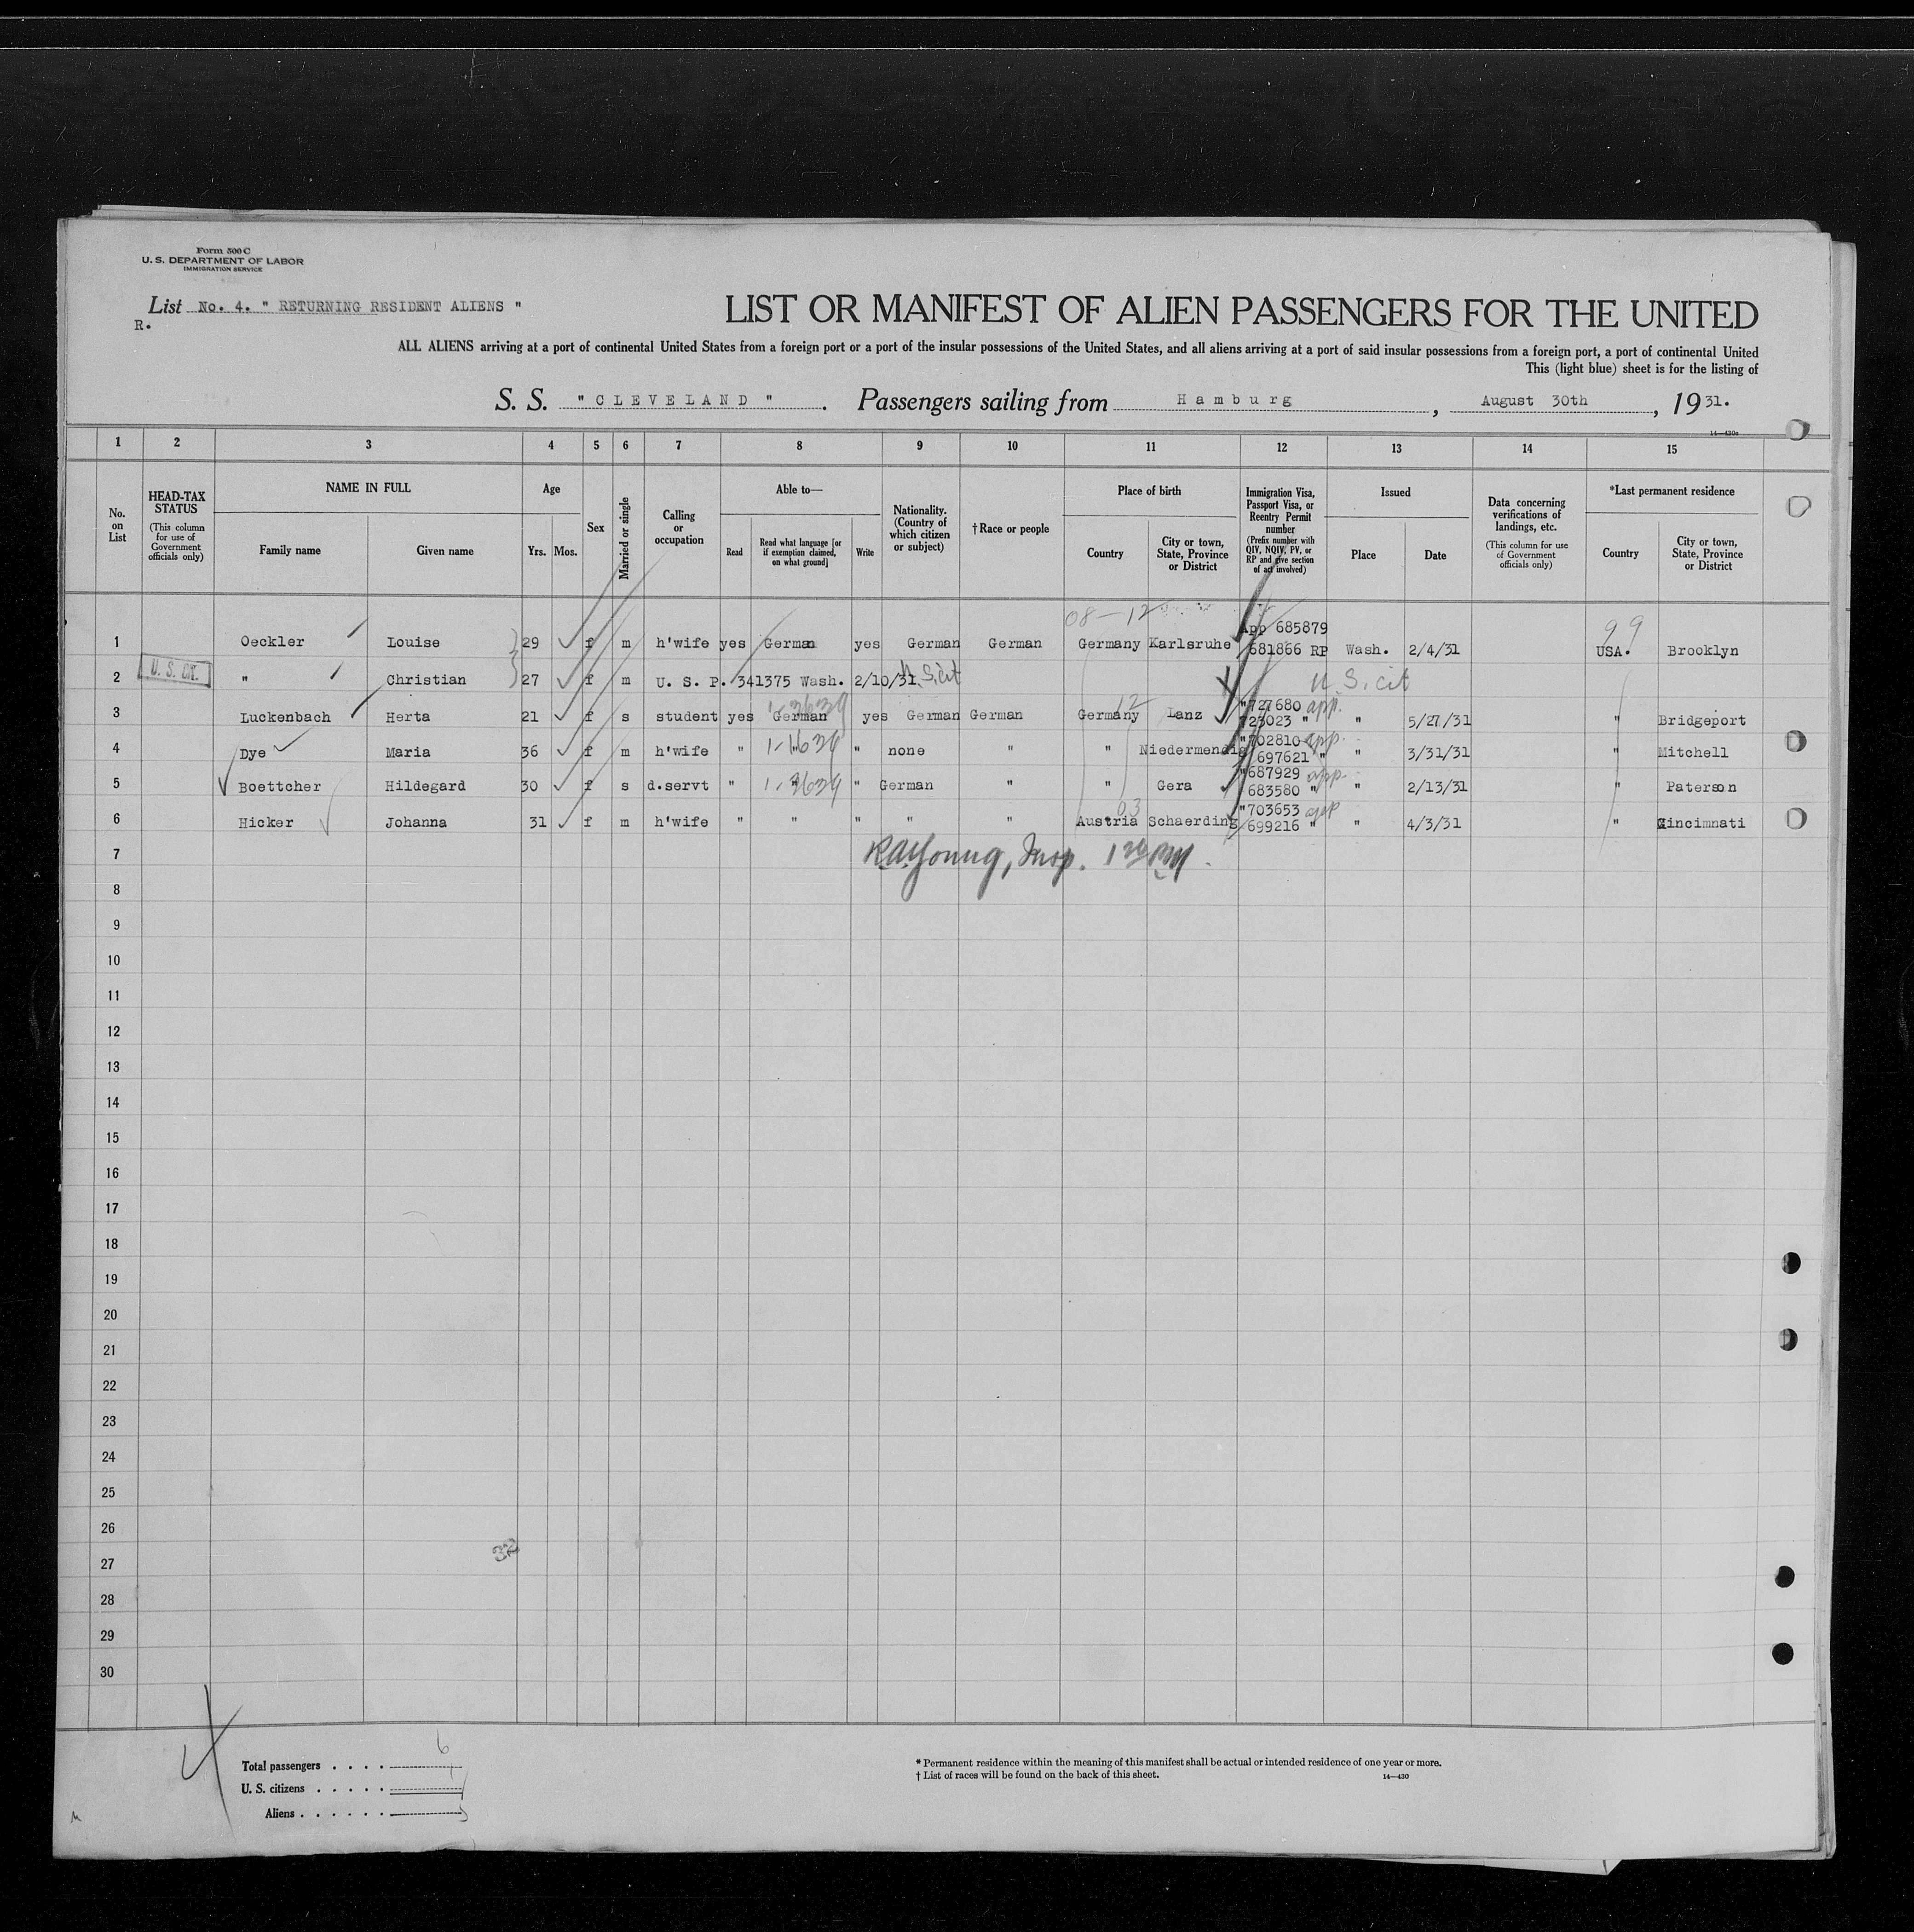 Form 500 C
U. S. DEPARTMENT OF LABOR
IMMIGRATION SERVICE
List No. 4. " RETURNING RESIDENT ALIENS "
R.
LIST OR MANIFEST OF ALIEN PASSENGERS FOR THE UNITED
ALL ALIENS arriving at a port of continental United States from a foreign port or a port of the insular possessions of the United States, and all aliens arriving at a port of said insular possessions from a foreign port, a port of continental United
This (light blue) sheet is for the listing of
S. S. " CLEVELAND ". Passengers sailing from Hamburg, August 30th, 1931.
14—430c
1 2 3 4 5 6 7 8 9 10 11 12 13 14 15
No. on List
HEAD-TAX STATUS (This column for use of Government officials only)
NAME IN FULL
Family name Given name
Age
Yrs. Mos.
Sex
Married or single
Calling or occupation
Able to—
Read Read what language [or if exemption claimed, on what ground] Write
Nationality. (Country of which citizen or subject)
†Race or people
Place of birth
Country City or town, State, Province or District
Immigration Visa, Passport Visa, or Reentry Permit number (Prefix number with QIV, NQIV, PV, or RP and give section of act involved)
Issued
Place Date
Data concerning verifications of landings, etc. (This column for use of Government officials only)
*Last permanent residence
Country City or town, State, Province or District
08-12
App 685879 99
1 Oeckler Louise 29 f m h'wife yes German yes German German Germany Karlsruhe 681866 RP Wash. 2/4/31 USA. Brooklyn
2 U. S. Cit. " Christian 27 f m U. S. P. 341375 Wash. 2/10/31. U.S. cit U. S. cit
12 "727680 app.
3 Luckenbach Herta 21 f s student yes German yes German German Germany Lanz 723023 " " 5/27/31 " Bridgeport
"702810 app.
4 Dye Maria 36 f m h'wife " " " none " " Niedermendig 697621 " " 3/31/31 " Mitchell
"687929 app.
5 Boettcher Hildegard 30 f s d.servt " " " German " " Gera 683580 " " 2/13/31 " Paterson
03 "703653 app
6 Hicker Johanna 31 f m h'wife " " " " " Austria Schaerding 699216 " " 4/3/31 " Cincinnati
7 RA Young, Insp.
8
9
10
11
12
13
14
15
16
17
18
19
20
21
22
23
24
25
26
32
27
28
29
30
Total passengers . . . . 6
U. S. citizens . . . . . 1
Aliens . . . . . . 5
* Permanent residence within the meaning of this manifest shall be actual or intended residence of one year or more.
† List of races will be found on the back of this sheet.
14—430